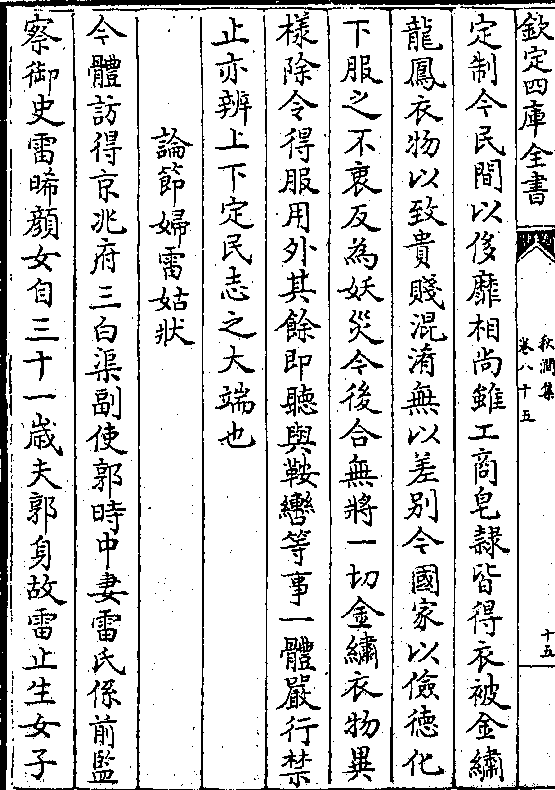 欽定四庫全書
秋澗集
卷八十五
十五
定制今民間以侈靡相尚雖工商皂隷皆得衣被金繡
龍鳳衣物以致貴賤混淆無以差别今國家以儉德化
下服之不衷反為妖災今後合無將一切金繡衣物異
様除令得服用外其餘即聽與鞍轡等事一體嚴行禁
止亦辨上下定民志之大端也
論節婦雷姑狀
今體訪得京兆府三白渠副使郭時中妻雷氏係前監
察御史雷晞顔女自三十一嵗夫郭身故雷止生女子